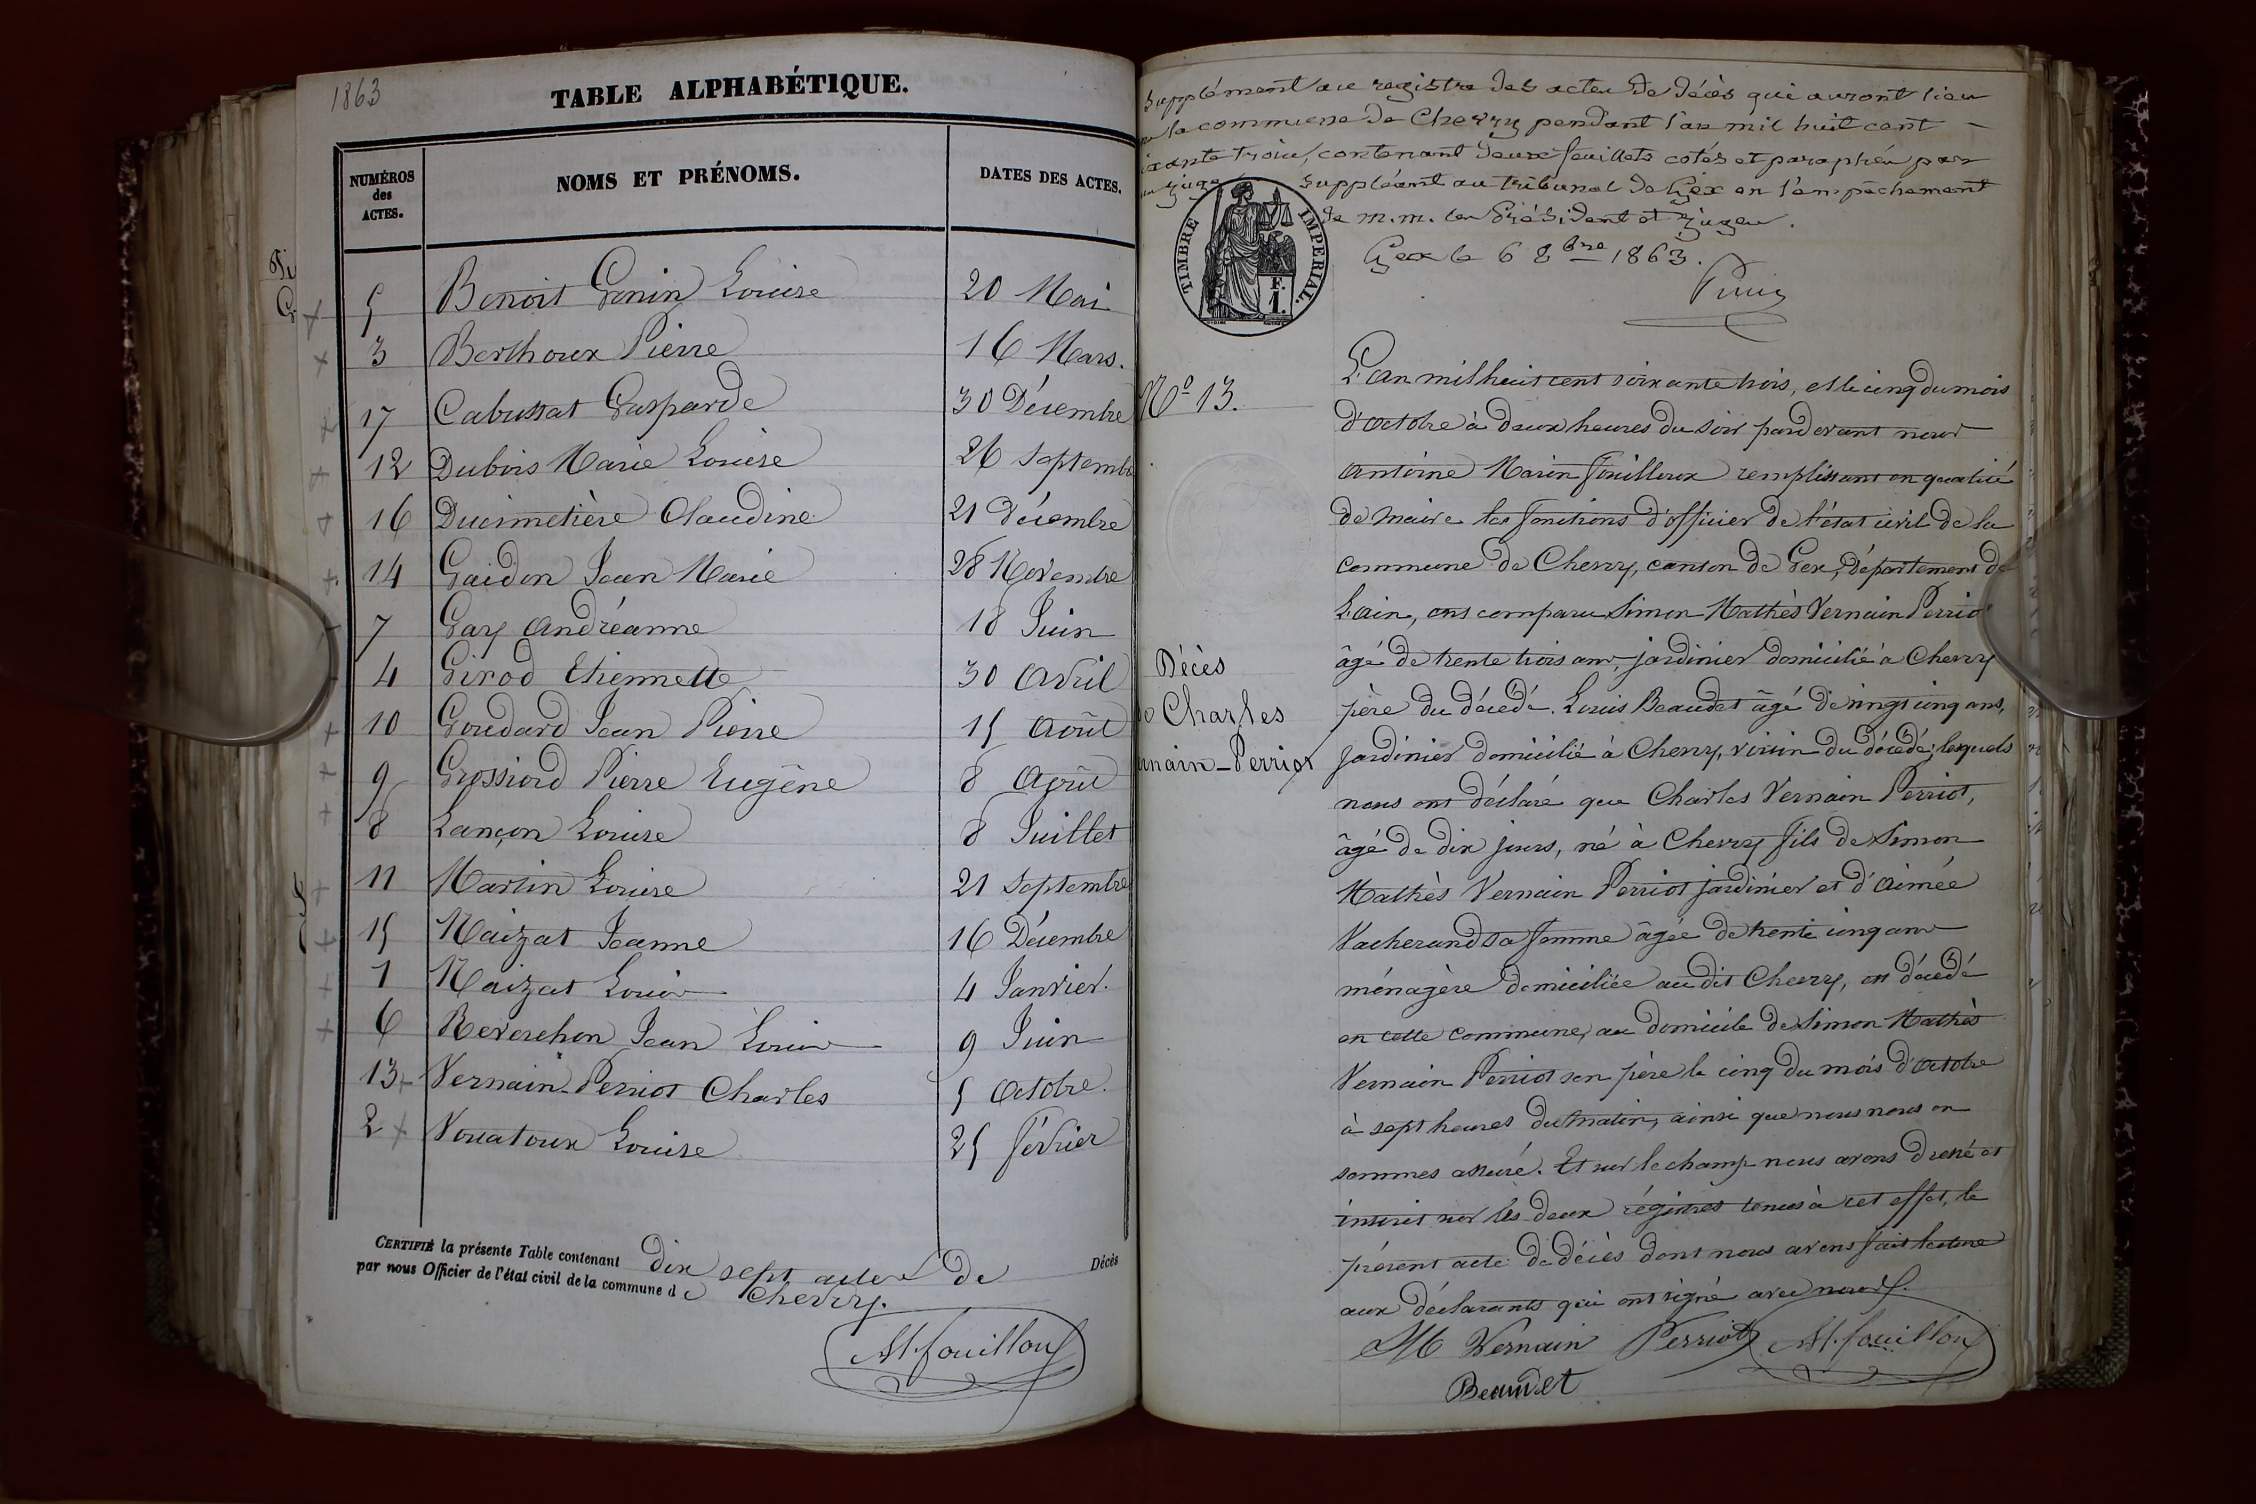 1863
TABLE ALPHABÉTIQUE.
NUMÉROS des ACTES.
NOMS ET PRÉNOMS.
DATES DES ACTES.
5 Benoit Genin Louise 20 Mai
3 Berthoux Pierre 16 Mars.
17 Cabussat Gasparde 30 Décembre
12 Dubois Marie Louise 26 Septembre
16 Ducimetière Claudine 21 Décembre
14 Gaidon Jean Marie 28 Novembre
7 Gay Andréanne 18 Juin
4 Girod Etiennette 30 Avril
10 Goudard Jean Pierre 15 Août
9 Grossiord Pierre Eugène 8 Août
8 Lançon Louise 8 Juillet
11 Martin Louise 21 Septembre
15 Maizat Jeanne 16 Décembre
1 Maizat Louis 4 Janvier.
6 Reverchon Jean Louis 9 Juin
13 Vernain-Perriot Charles 5 Octobre.
2 Vouatoux Louise 25 février
CERTIFIÉ la présente Table contenant dix sept actes de Décès
par nous Officier de l'état civil de la commune de Chevry.
AM. fouilloux
Supplément au registre des actes de décès qui auront lieu
la commune de Chevry pendant l'an mil huit cent
ixante trois, contenant deux feuillets cotés et paraphés par
juge suppléant au tribunal de Gex en l'empêchement
de m.m. les Président et juges.
Gex le 6 8bre 1863.
TIMBRE IMPÉRIAL.
F. 1.
N° 13.
Décès
de Charles
rnain-Perriot
L'an mil huit cent soixante trois, et le cinq du mois
d'octobre à deux heures du soir pardevant nous
Antoine Marin fouilloux remplissant en qualité
de Maire les fonctions d'officier de l'état civil de la
commune de Chevry, canton de Gex, département de
L'ain, ont comparu Simon Mathès Vernain Perriot
âgé de trente trois ans, jardinier domicilié à Chevry
père du décédé. Louis Beaudet âgé de vingt cinq ans,
jardinier domicilié à Chevry, voisin du décédé; lesquels
nous ont déclaré que Charles Vernain Perriot,
âgé de dix jours, né à Chevry fils de Simon
Mathès Vernain Perriot jardinier et d'Aimée
Vacherand sa femme âgée de trente cinq ans
ménagère domiciliée au dit Chevry, est décédé
en cette commune, au domicile de Simon Mathès
Vernain Perriot son père le cinq du mois d'octobre
à sept heures du matin, ainsi que nous nous en
sommes assuré. Et sur le champ nous avons dressé et
inscrit sur les deux régistres tenus à cet effet, le
présent acte de décès dont nous avons fait lecture
aux déclarants qui ont signé avec nous.
M Vernain Perriot AM. fouilloux
Beaudet